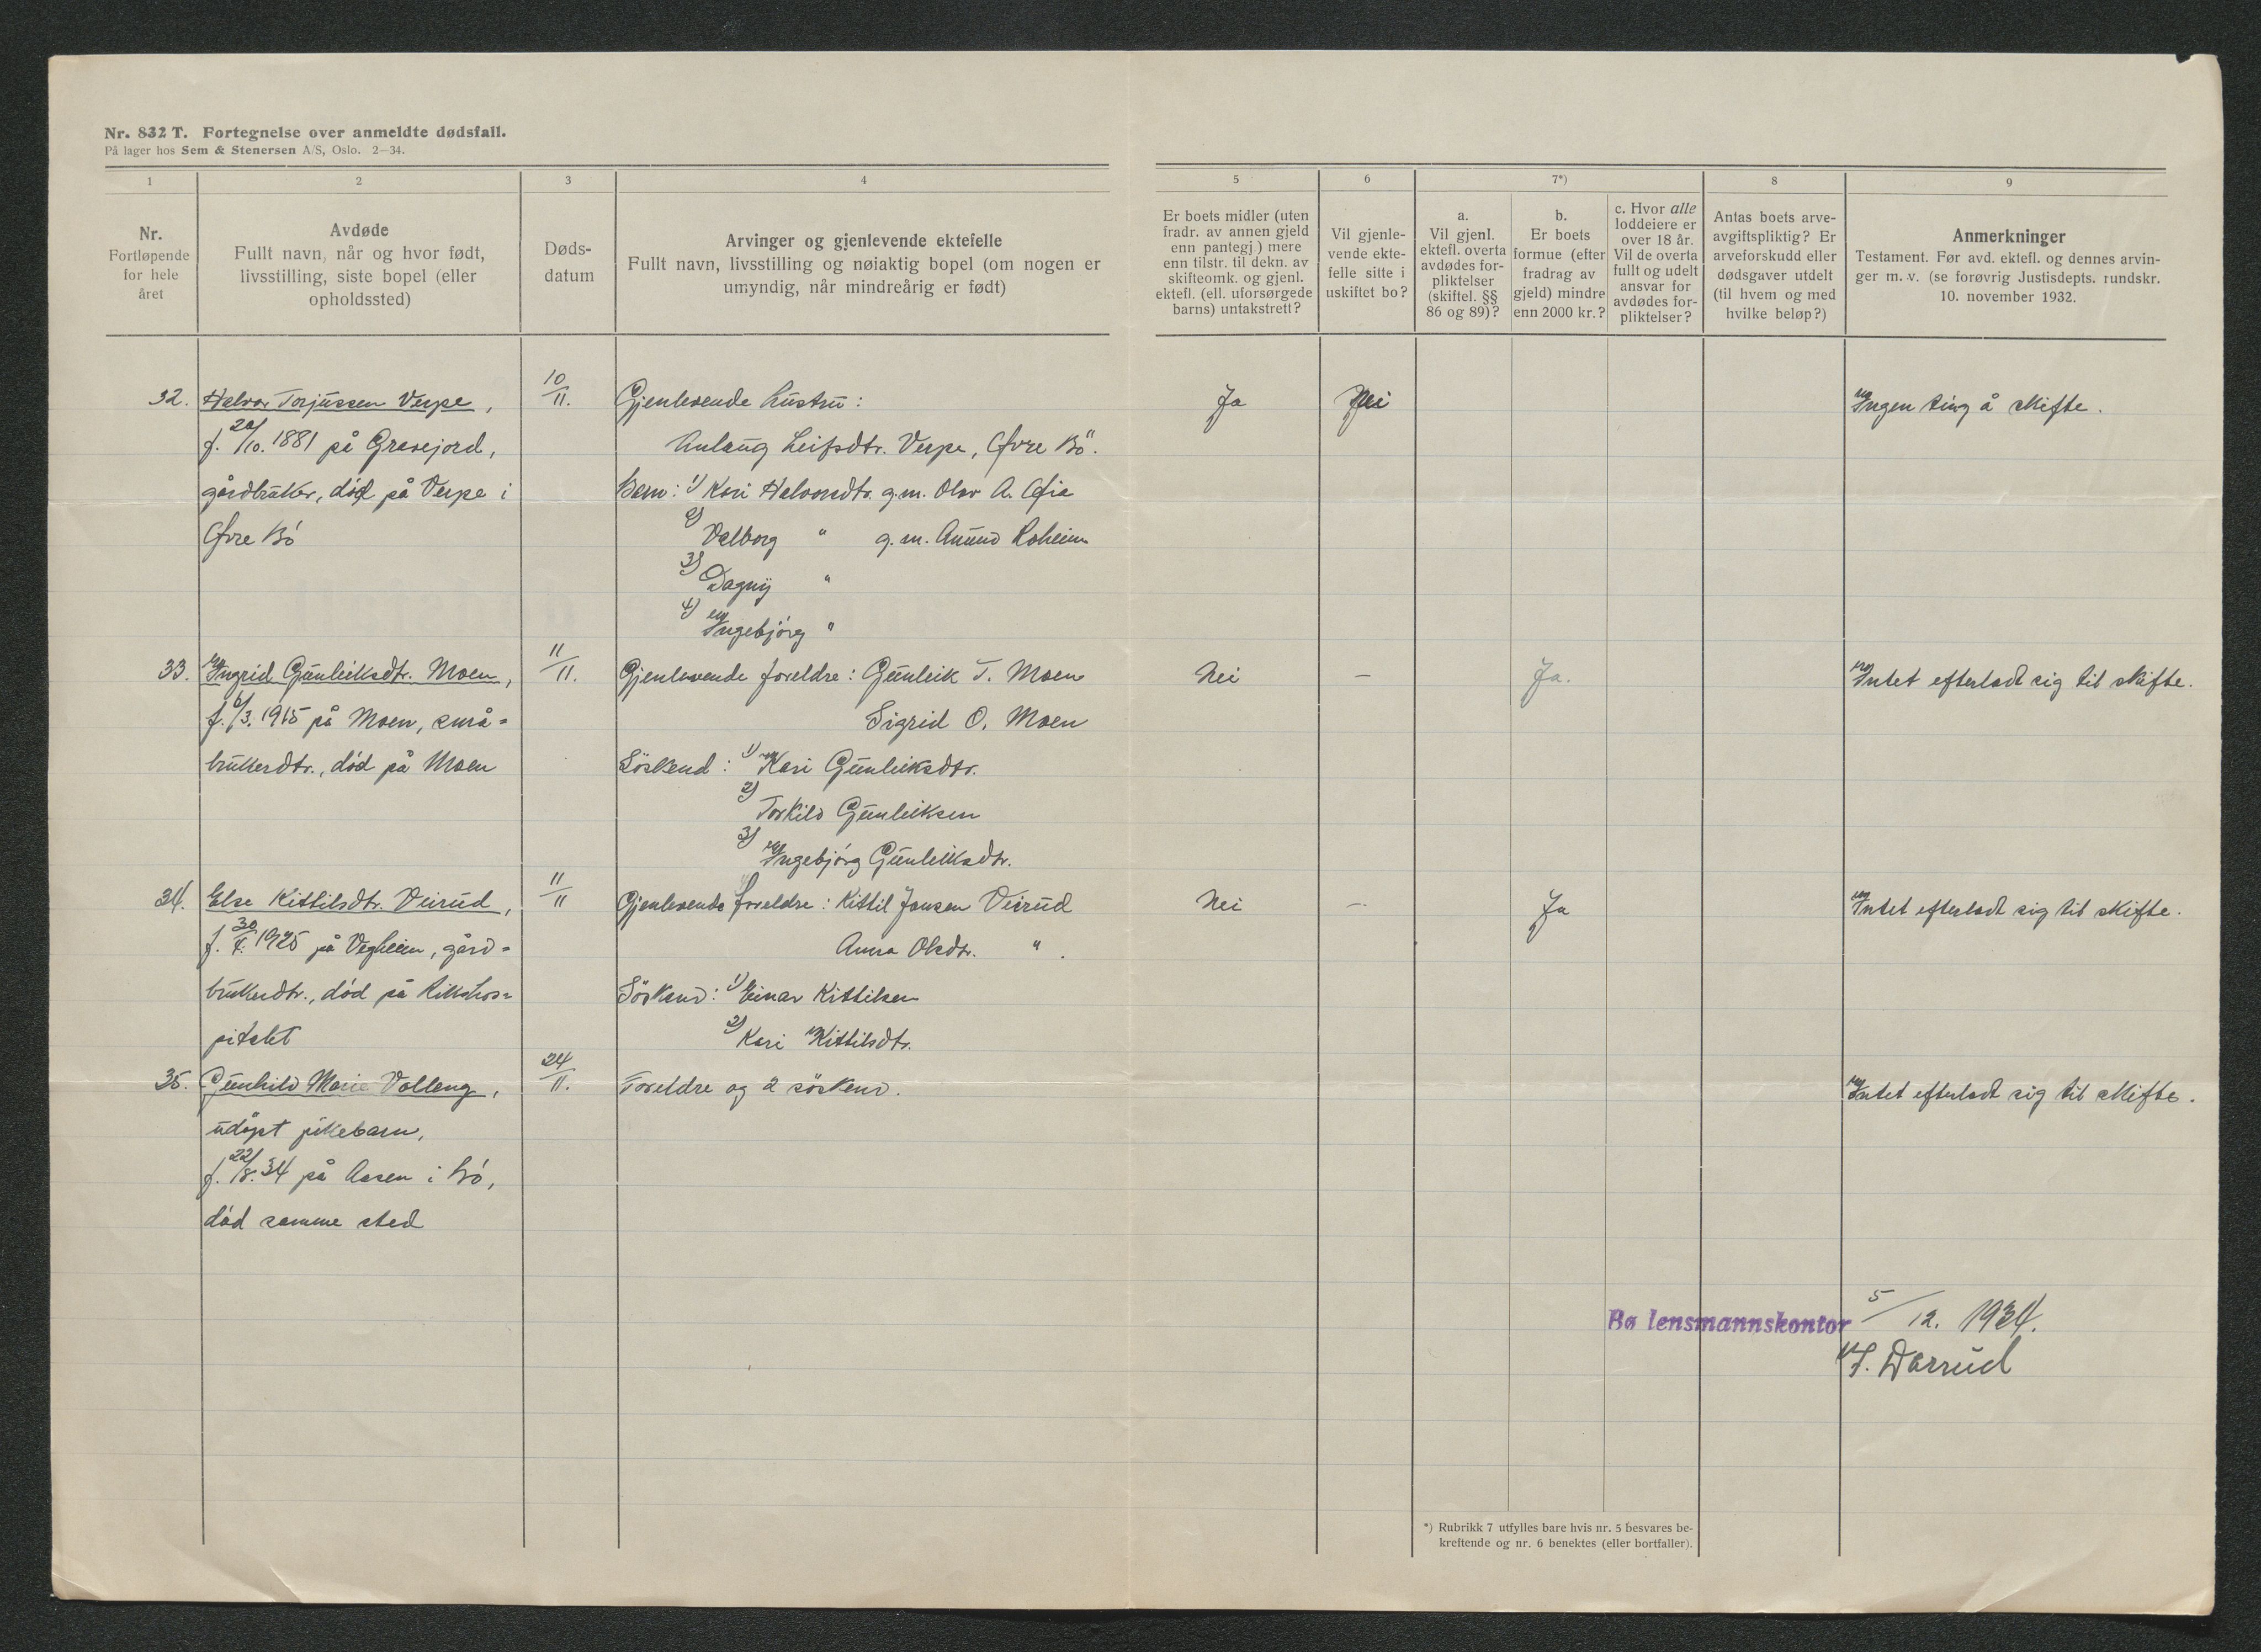 Nr. 832 T. Fortegnelse over anmeldte dødsfall.
På lager hos Sem & Stenersen A/S, Oslo. 2—34.
1
2
3
4
5
6
7*)
8
9
Nr.
Fortløpende
for hele
året
Avdøde
Fullt navn, når og hvor født,
livsstilling, siste bopel (eller
opholdssted)
Døds-
datum
Arvinger og gjenlevende ektefelle
Fullt navn, livsstilling og nøiaktig bopel (om nogen er
umyndig, når mindreårig er født)
Er boets midler (uten
fradr. av annen gjeld
enn pantegj.) mere
enn tilstr. til dekn. av
skifteomk. og gjenl.
ektefl. (ell. uforsørgede
barns) untakstrett?
Vil gjenle-
vende ekte-
felle sitte i
uskiftet bo?
a.
Vil gjenl.
ektefl. overta
avdødes for-
pliktelser
(skiftel. §§
86 og 89)?
b.
Er boets
formue (efter
fradrag av
gjeld) mindre
enn 2000 kr.?
c. Hvor alle
loddeiere er
over 18 år.
Vil de overta
fullt og udelt
ansvar for
avdødes for-
pliktelser?
Antas boets arve-
avgiftspliktig? Er
arveforskudd eller
dødsgaver utdelt
(til hvem og med
hvilke beløp?)
Anmerkninger
Testament. Før avd. ektefl. og dennes arvin-
ger m. v. (se forøvrig Justisdepts. rundskr.
10. november 1932.
32. Halvor Torjussen Verpe, 10/11. Gjenlevende hustru: Ja Nei Ingen ting å skifte.
f. 20/10. 1881 på Gravejord, Aulaug Leifsdtr. Verpe, Øvre Bö.
gårdbruker, död på Verpe i Barn: 1) Kari Halvorsdtr. g.m. Olav A.
Øvre Bö 2) Valborg " g.m. Anund Roheim
3) Dagny "
4) Ingebjörg "
33. Ingrid Gunleiksdtr. Moen, 11/11. Gjenlevende foreldre: Gunleik T. Moen Nei — Ja. Intet efterladt sig til skifte.
f. 6/3. 1915 på Moen, små- Sigrid O. Moen
brukerdtr., död på Moen Söskend: 1) Kari Gunleiksdtr.
2) Torkild Gunleiksen
3) Ingebjörg Gunleiksdtr.
34. Else Kittilsdtr. Veirud, 11/11 Gjenlevende foreldre: Kittil Jansen Veirud Nei — Ja Intet efterladt sig til skifte.
f. 30/4. 1925 på Vegheim, gård- Anna Olsdtr. " .
brukerdtr., död på Rikshos- Söskend: 1) Einar Kittilsen
pitalet 2) Kari Kittilsdtr.
35. Gunhild Marie Valleng, 24/11. Foreldre og 2 söskend. Intet efterladt sig til skifte.
udöpt pikebarn,
f. 22/8. 34 på Aasen i Bö,
död samme sted
Bø lensmannskontor 5/12. 1934.
Darrud
*) Rubrikk 7 utfylles bare hvis nr. 5 besvares be-
kreftende og nr. 6 benektes (eller bortfaller).